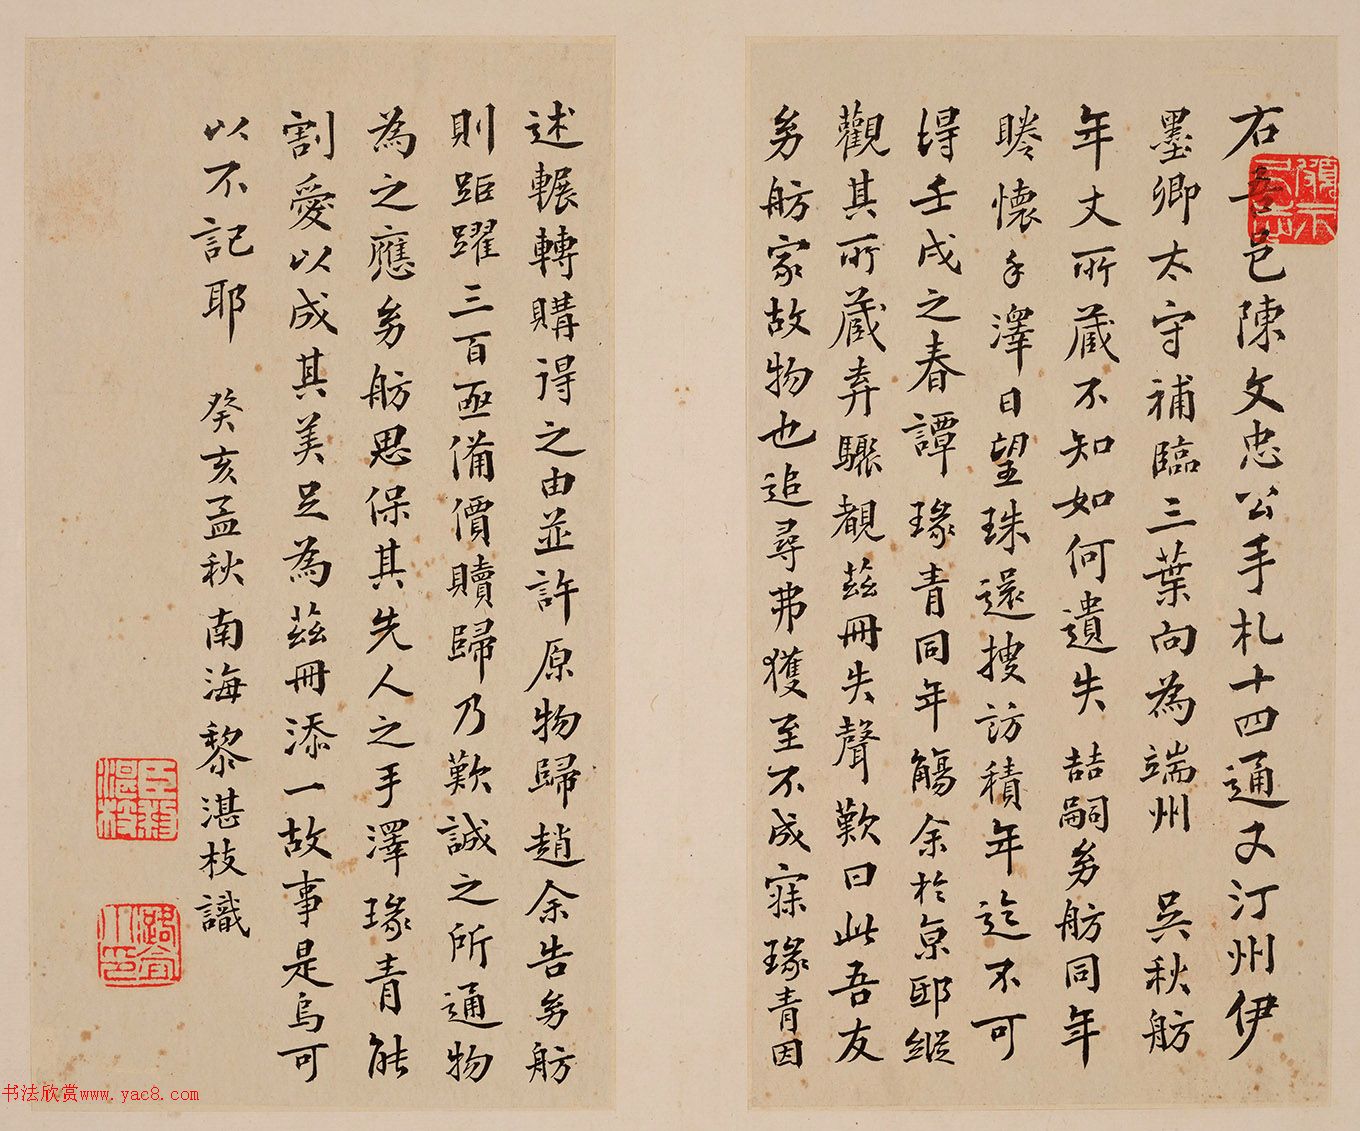 右吾邑陳文忠公手札十四通又汀州伊
墨卿太守補臨三葉向為端州 吳秋舫
年丈所藏不知如何遺失 喆嗣舫同年
睠懷手澤日望珠還搜訪積年迄不可
得壬戌之春譚瑑青同年觴余於京邸縱
觀其所藏弆驟覩茲冊失聲歎曰此吾友
舫家故物也追尋弗獲至不成寐瑑青因
述輾轉購得之由並許原物歸趙余告舫
則距躍三百亟備價贖歸乃歎誠之所通物
為之應舫思保其先人之手澤瑑青能
割愛以成其美足為茲冊添一故事是烏可
以不記耶 癸亥孟秋南海黎湛枝識
臣黎湛枝
书法欣赏www.yac8.com